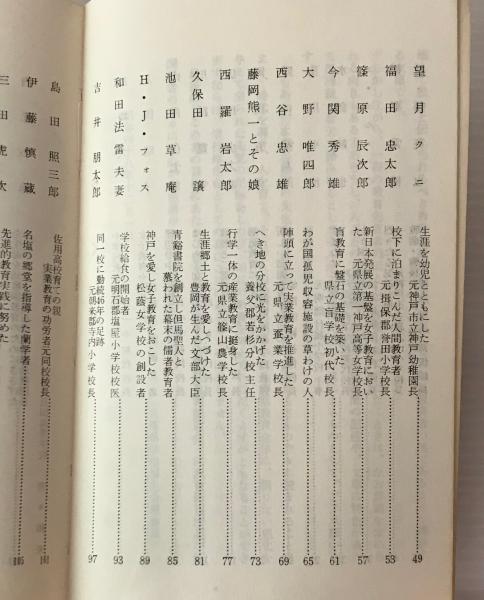 望月クニ
生涯を幼児とともにした
元神戸市立神戸幼稚園長
49
福田忠太郎
校下に泊まりこんだ人間教育者
元揖保郡誉田小学校長
53
篠原辰次郎
新日本発展の基盤を女子教育におい
た 元県立第一神戸高等女学校長
57
今関秀雄
盲教育に磐石の基礎を築いた
県立盲学校初代校長
61
大野唯四郎
わが国孤児収容施設の草わけの人
65
西谷忠雄
陣頭に立って実業教育を推進した
元県立蚕業学校長
69
藤岡熊一とその娘
へき地の分校に光をかかげた
養父郡若杉分校主任
73
西羅岩太郎
行学一体の産業教育に挺身した
元県立篠山農学校長
77
久保田譲
生涯郷土と教育を愛しつづけた
豊岡が生んだ文部大臣
81
池田草庵
青谿書院を創立し但馬聖人と
慕われた幕末の儒者教育者
85
H・J・フォス
神戸を愛し女子教育をおこした
松蔭女学校の創設者
89
和田法雷夫妻
学校給食の開始者
元明石郡塩屋小学校校医
93
吉井朋太郎
同一校に勤続46年の足跡
元朝来郡寺内小学校長
97
島田照三郎
佐用高校育ての親
実業教育の功労者元同校校長
101
伊藤慎蔵
名塩の郷党を指導した蘭学者
105
三田虎次
先進的教育実践に努めた